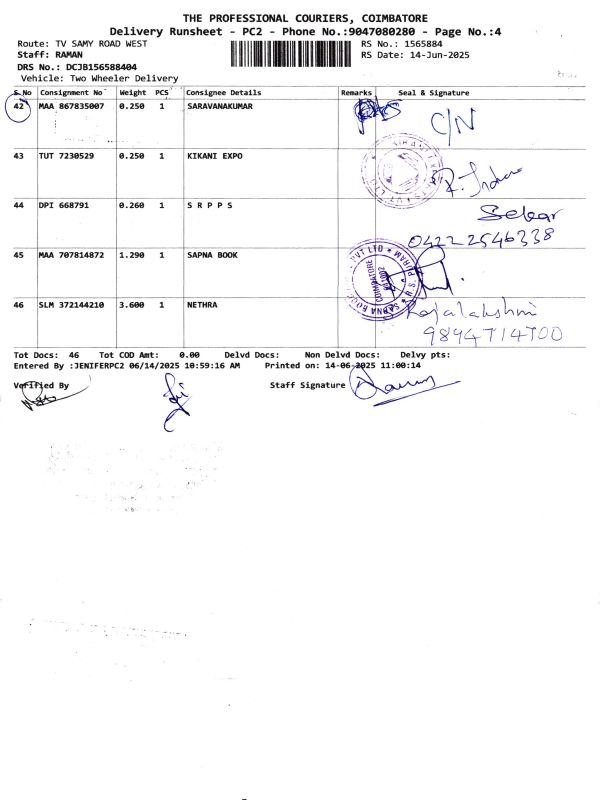 THE PROFESSIONAL COURIERS, COIMBATORE
Delivery Runsheet - PC2 - Phone No.:9047080280 - Page No.:4
Route: TV SAMY ROAD WEST RS No.: 1565884
Staff: RAMAN RS Date: 14-Jun-2025
DRS No.: DCJB156588404
Vehicle: Two Wheeler Delivery
S.No Consignment No Weight PCS Consignee Details Remarks Seal & Signature
42 MAA 867835007 0.250 1 SARAVANAKUMAR
C/N
43 TUT 7230529 0.250 1 KIKANI EXPO
44 DPI 668791 0.260 1 S R P P S
Sekar
0422 2546338
45 MAA 707814872 1.290 1 SAPNA BOOK
PVT LTD
COIMBATORE
SAPNA BOOK
R.S. PURAM
46 SLM 372144210 3.600 1 NETHRA
Rajalakshmi
9894714700
Tot Docs: 46 Tot COD Amt: 0.00 Delvd Docs: Non Delvd Docs: Delvy pts:
Entered By :JENIFERPC2 06/14/2025 10:59:16 AM Printed on: 14-06-2025 11:00:14
Verified By Staff Signature